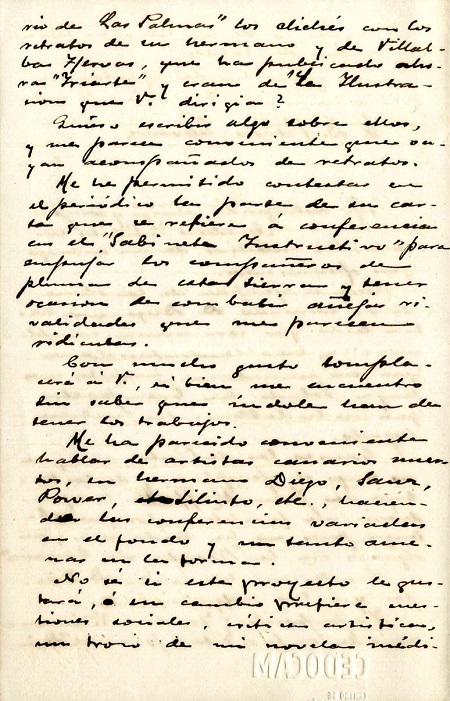 rio de Las Palmas" los clichés con los
retratos de su hermano y de Villal-
ba Hervas, que ha publicado aho-
ra "Iriarte" y eran de "La Ilustra-
cion que V. dirigia?
Quiero escribir algo sobre ellos,
y me parece conveniente que va-
yan acompañados de retratos.
Me he permitido contestar en
el periódico la parte de su car-
ta que se refiere á conferencia
en el "Gabinete Instructivo" para
empujar los compañeros de
pluma de esta tierra y tener
ocasion de combatir añejas ri-
validades que me parecen
ridiculas.
Con mucho gusto compla-
ceré á V., si bien me encuentro
sin saber que indole han de
tener los trabajos.
Me ha parecido conveniente
hablar de artistas canarios muer-
tos, su hermano Diego, Sanz,
Power, etc., hacien-
do las conferencias variadas
en el fondo y un tanto ame-
nas en la forma.
No sé si este proyecto le gus-
tará, ó en cambio prefiere cues-
tiones sociales, criticas artisticas,
un trozo de mi novela inédi-
CEDOCAM